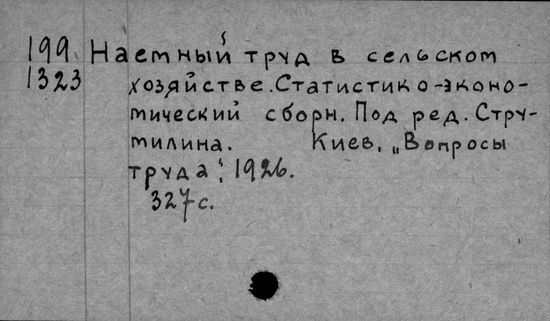 199 Наемный труд в сельском
1323 хозяйстве. Статистико-эконо-
мический сборн. Под ред. Стру-
милина. Киев, „Вопросы
труда", 1926.
327 с.